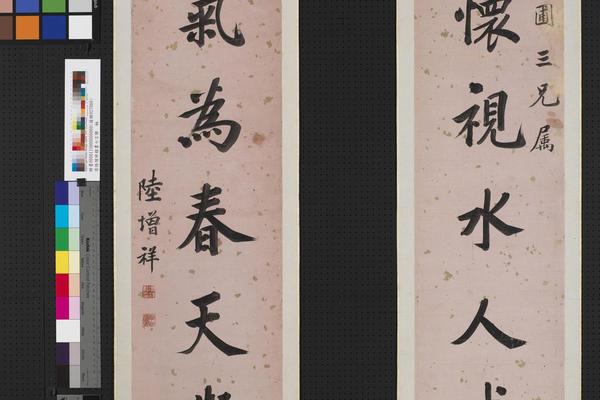 圃三兄属
懷視水人
氣為春天
陸增祥